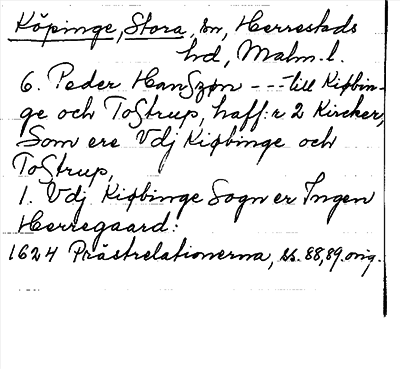 Köpinge, Stora, sn, Herrestads
hd, Malm. l.
6. Peder HanSzøn --- till Kiøbin-
ge och ToStrup, haff:r 2 Kircker,
Som ere Vdj Kiøbinge och
ToStrup,
1. Vdj Kiøbinge Sogn er Ingen
Herregaard:
1624 Prästrelationerna, ss. 88,89. orig.